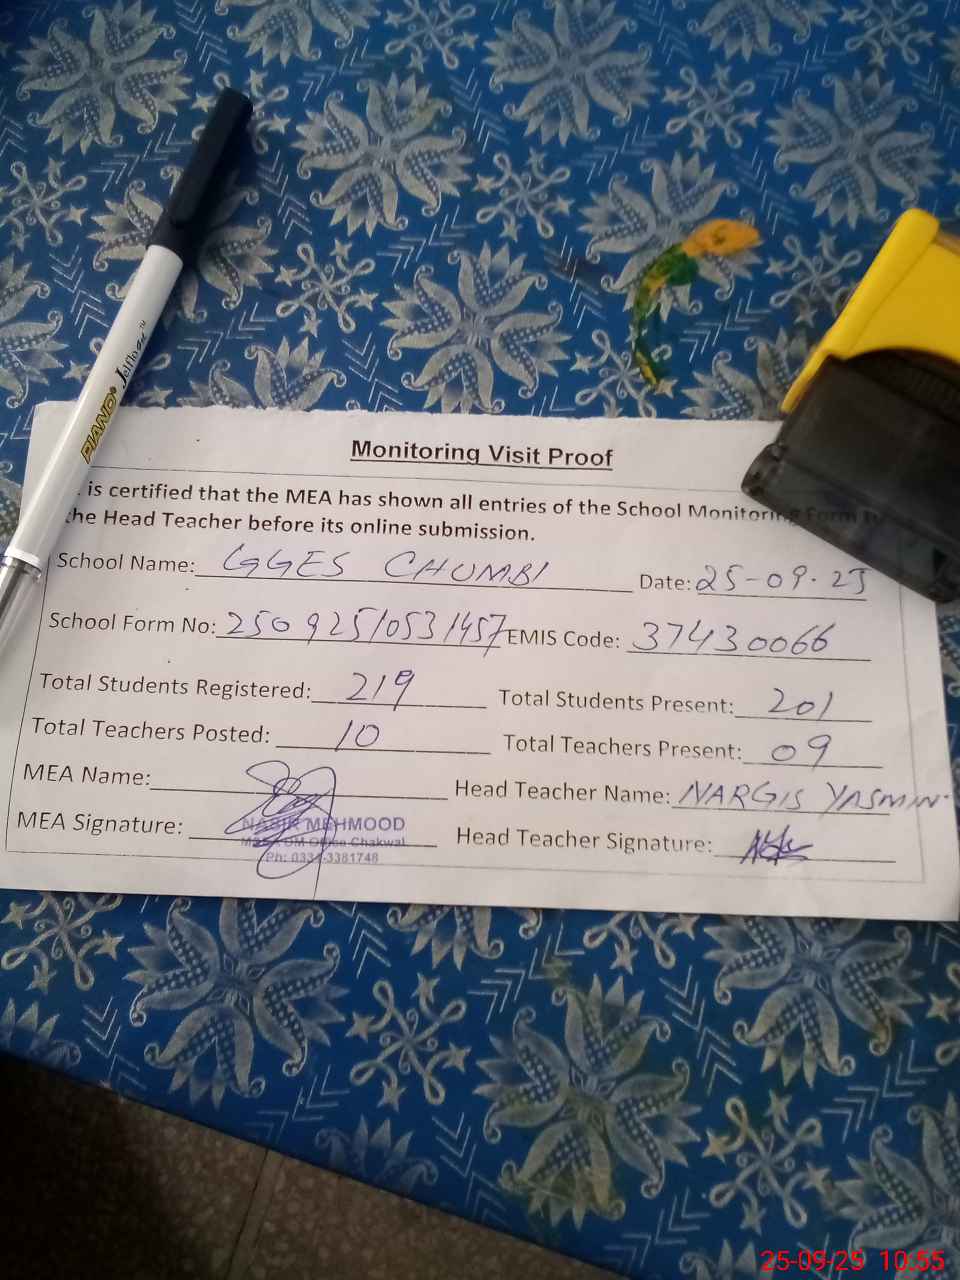 PIANO® Jetflote™
Monitoring Visit Proof
is certified that the MEA has shown all entries of the School Monitoring Form
the Head Teacher before its online submission.
School Name: GGES CHUMBI Date: 25-09-25
School Form No: 25092510531457 EMIS Code: 37430066
Total Students Registered: 219 Total Students Present: 201
Total Teachers Posted: 10 Total Teachers Present: 09
MEA Name: Head Teacher Name: NARGIS YASMIN.
MEA Signature: Head Teacher Signature:
NASIR MEHMOOD
Office Chakwal
Ph: 0334-3381748
25-09-25 10:55